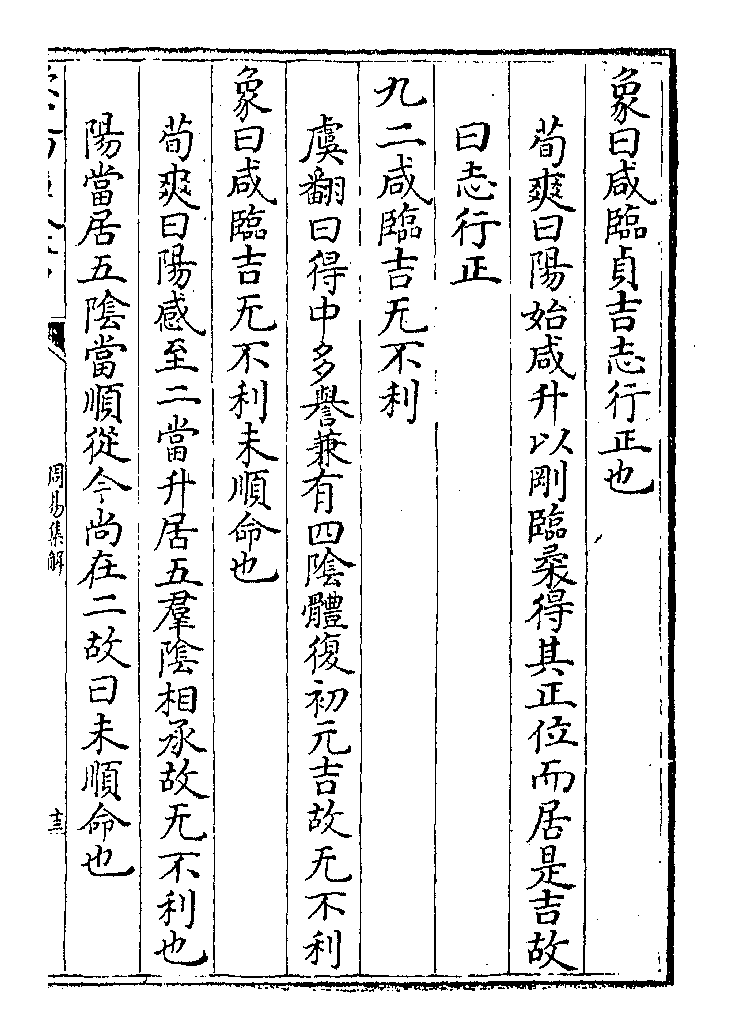 象曰咸臨貞吉志行正也
荀爽曰陽始咸升以剛臨柔得其正位而居是吉故
曰志行正
九二咸臨吉无不利
虞翻曰得中多譽兼有四陰體復初元吉故无不利
象曰咸臨吉无不利未順命也
荀爽曰陽感至二當升居五羣陰相承故无不利也
陽當居五陰當順從今尚在二故曰未順命也
周易集解